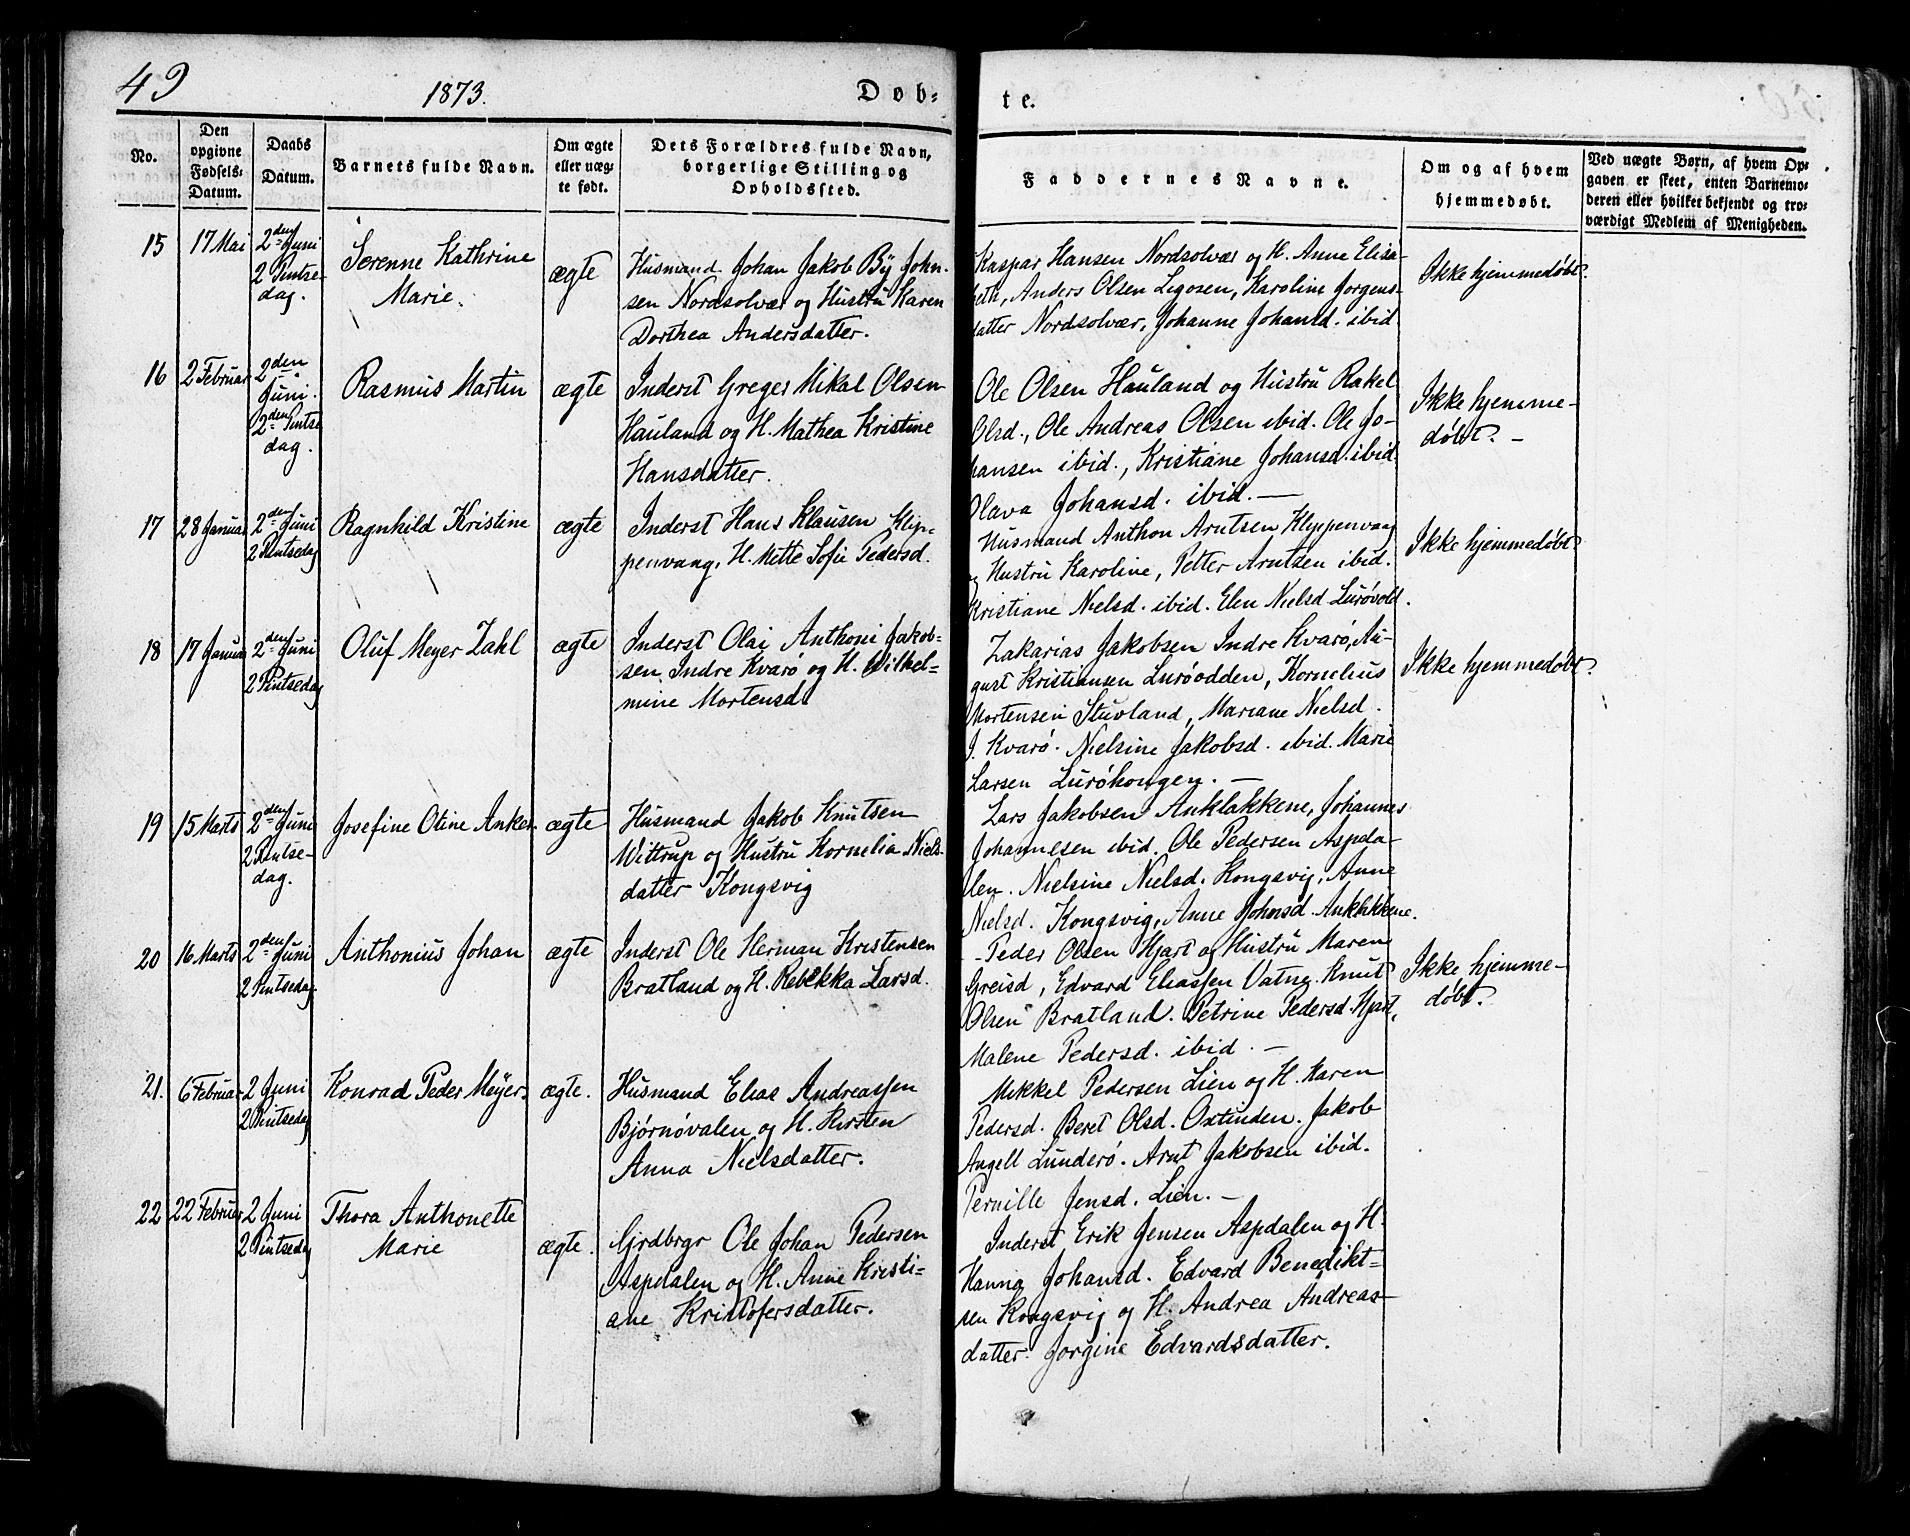 49 1873. Døb- te.
No.
Den opgivne Fødsels- Datum.
Daabs Datum.
Barnets fulde Navn.
Om ægte eller uæg- te født.
Dets Forældres fulde Navn, borgerlige Stilling og Opholdssted.
Faddernes Navne.
Om og af hvem hjemmedøbt.
Ved uægte Børn, af hvem Op-
gaven er skeet, enten Barnemo-
deren eller hvilket bekjendt og tro-
værdigt Medlem af Menigheden.
15
17 Mai
2den Juni
2 Pintse-
dag.
Serenne Kathrine
Marie.
ægte
Husmand Johan Jakob By John-
sen Nordsolvær og Hustru Karen
Dorthea Andersdatter.
Kaspar Hansen Nordsolvær og H. Anne Elisa-
beth, Anders Olsen Ligosen, Karoline Jorgens-
datter Nordsolvær, Johanne Johansd. ibid.
Ikke hjemmedøbt.
16
2 Februar
2den
Juni.
2den Pintse
dag.
Rasmus Martin
ægte
Inderst Greger Mikal Olsen
Hauland og H. Mathea Kristine
Hansdatter.
Ole Olsen Hauland og Hustru Rakel
Olsd., Ole Andreas Olsen ibid. Ole Jo-
hansen ibid., Kristiane Johansd. ibid.
Olava Johansd. ibid. —
Ikke hjemme-
døbt. -
17
28 Januar
2den Juni
2 Pintsedag
Ragnhild Kristine
ægte
Inderst Hans Klausen Klip-
penvaag, H. Mette Sofie Pedersd.
Husmand Anthon Arntsen Klippenvaag
og Hustru Karoline, Petter Arntsen ibid.
Kristiane Nielsd. ibid. Elen Nielsd Lurøvold.
Ikke hjemmedøbt
18
17 Januar
2den Juni
2 Pintsedag
Oluf Meyer Zahl
ægte
Inderst Olai Anthoni Jakob-
sen Indre Kvarø og H. Wilhel-
mine Mortensd.
Zakarias Jakobsen Indre Kvarø, Au-
gust Kristiansen Lurøodden, Kornelius
Mortensen Stuvland, Mariane Nielsd.
J. Kvarø. Nielsine Jakobsd. ibid. Marie
Larsen Lurøkongen. —
Ikke hjemmedøbt.
19
15 Marts
2den Juni
2 Pintse-
dag.
Josefine Otine Anker.
ægte
Husmand Jakob Knutsen
Wittrup og Hustru Kornelia Niels-
datter Kongsvig
Lars Jakobsen Anklakkene, Johannes
Johannesen ibid. Ole Pedersen Aspda-
len. Nielsine Nielsd. Kongsvig, Anne
Nielsd. Kongsvig, Anne Johnsd. Anklakkene.
20
16 Marts
2den Juni
2 Pintsedag.
Anthonius Johan
ægte
Inderst Ole Herman Kristensen
Bratland og H. Rebekka Larsd.
Peder Olsen Hjart og Hustru Maren
Greisd, Edvard Eliassen Vatne. Knut
Olsen Bratland. Petrine Pedersd. Hjart,
Malene Pedersd. ibid. —
Ikke hjemme-
døbt.
21.
6 Februar
2 Juni
2 Pintsedag
Konrad Peder Meÿer.
ægte.
Husmand Elias Andreassen
Bjørnøvalen og H. Kirsten
Anna Nielsdatter.
Mikkel Pedersen Lien og H. Karen
Pedersd. Beret Olsd. Oxtinden. Jakob
Angell Lunderø. Arnt Jakobsen ibid.
Pernille Jensd. Lien. —
22
22 Februar
2 Juni
2 Pintsedag
Thora Anthonette
Marie
ægte.
Gjrdbrgr Ole Johan Pedersen
Aspdalen og H. Anne Kristi-
ane Kristofersdatter.
Inderst Erik Jensen Aspdalen og H.
Hanna Johansd. Edvard Benedikt-
sen Kongsvig og H. Andrea Andreas-
datter. Jorgine Edvardsdatter.